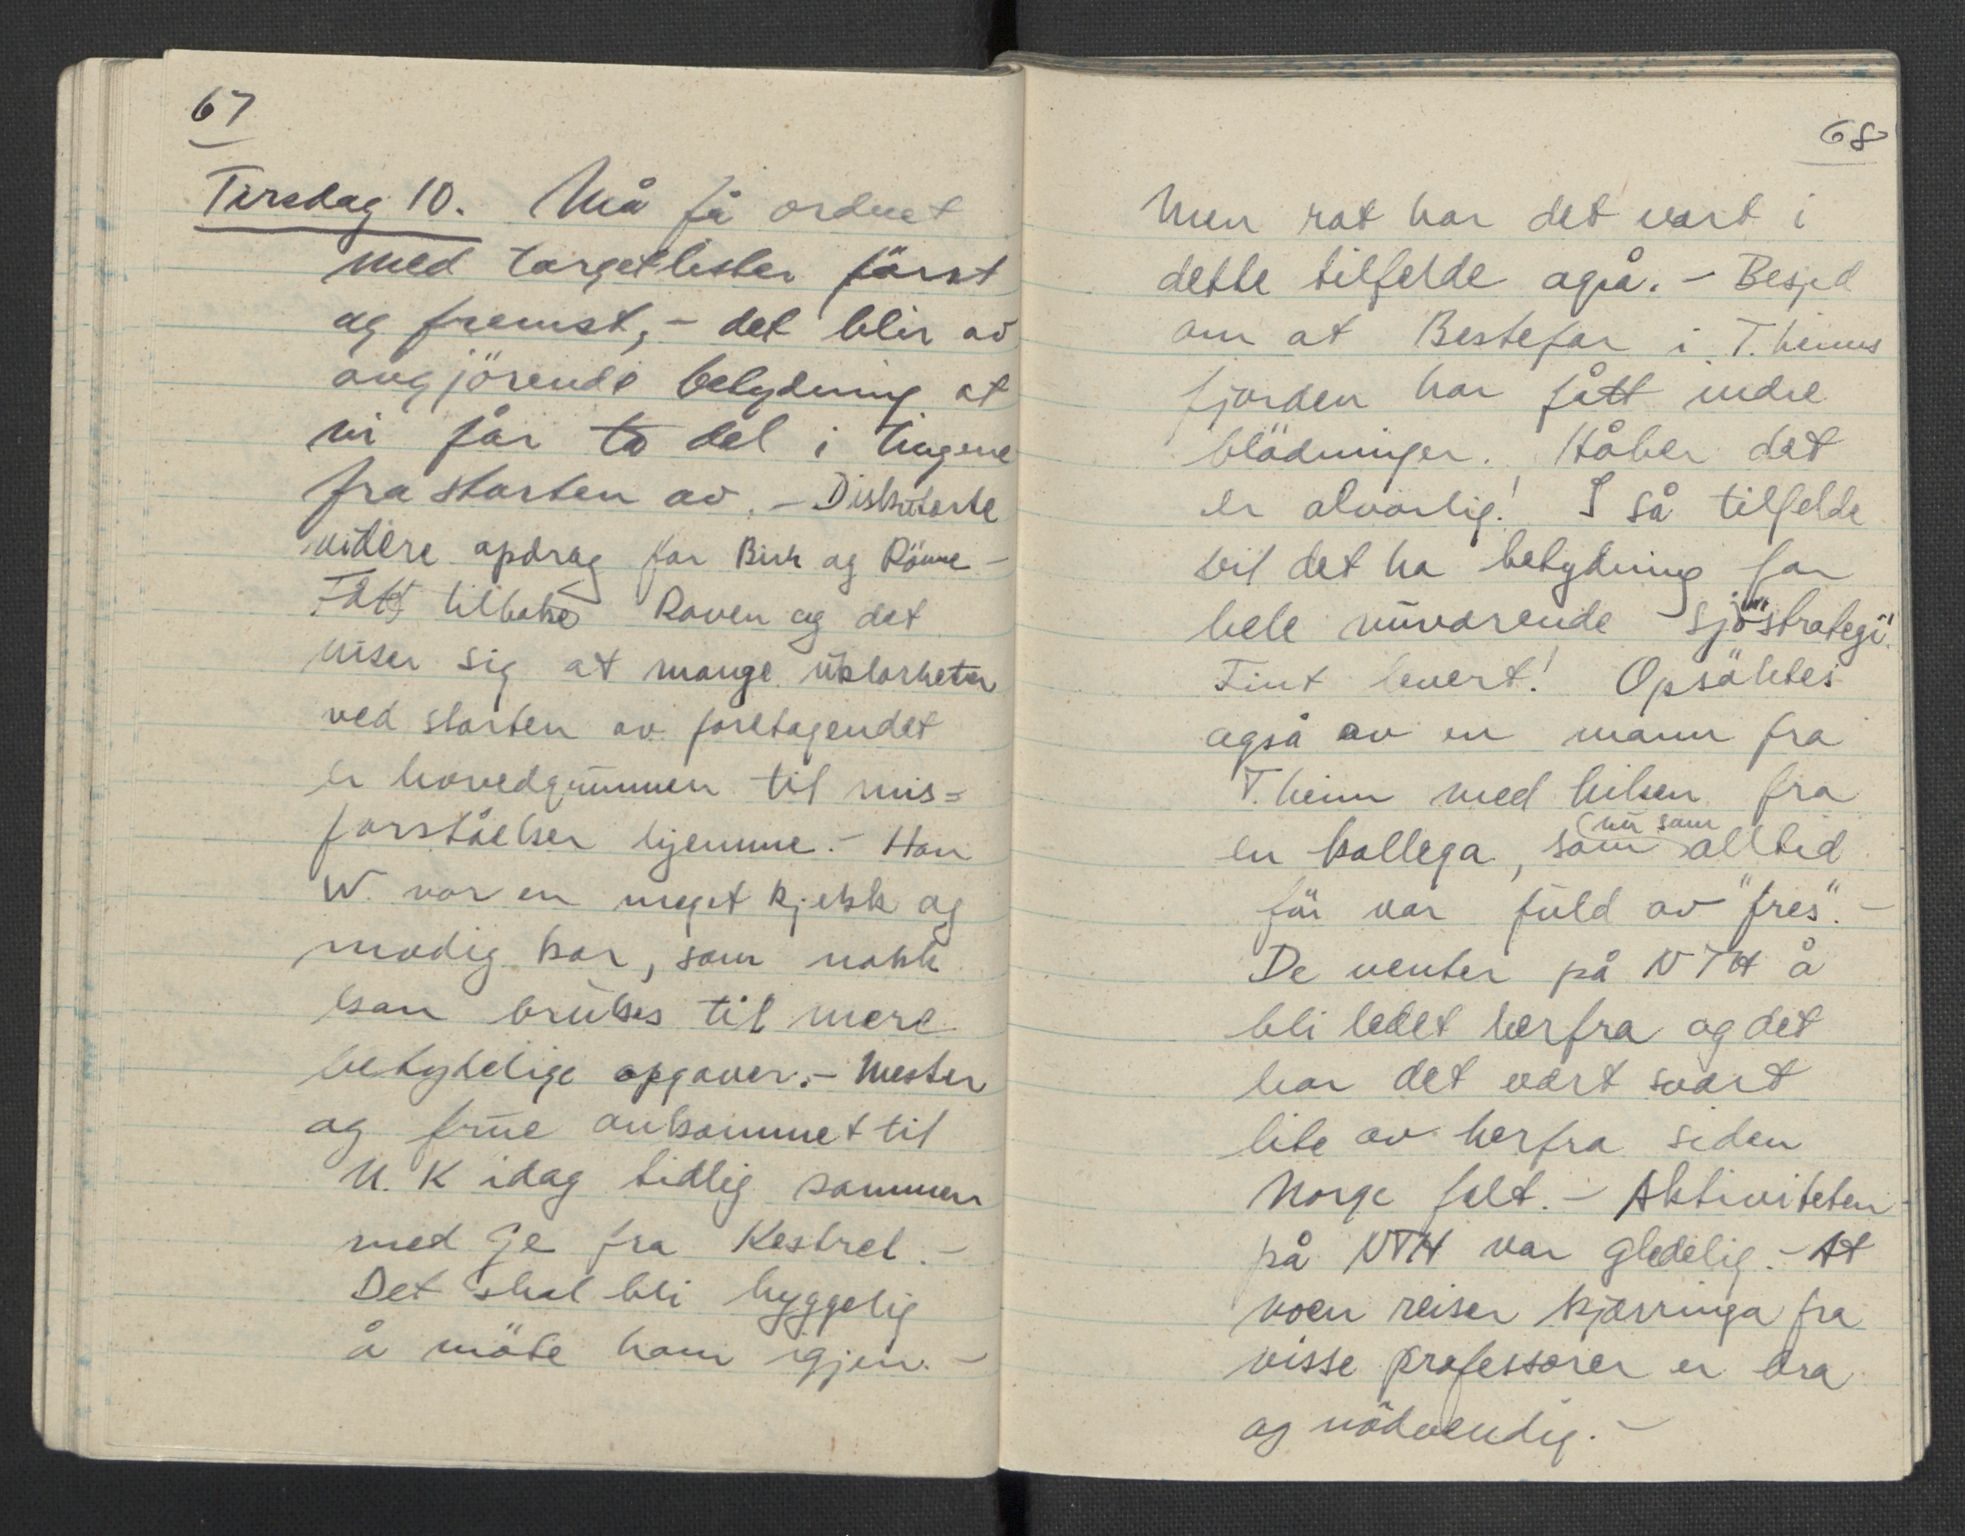 67
Tirsdag 10. Må få ordnet
med targetlister först
og fremst, - det blir av
avgjörende betydning at
vi får ta del i tingene
fra starten av. - Diskuterte
videre opdrag for Birk og Rönne -
Fått tilbake Raven og det
viser sig at mange uklarheter
ved starten av foretagendet
er hovedgrunnen til mis=
forståelser hjemme. - Han
W. var en meget kjekk og
modig kar, som nokk
kan brukes til mere
betydelige opgaver. - Mester
og frue ankommet til
U.K idag tidlig sammen
med Ge fra Kestrel. -
Det skal bli hyggelig
å möte ham igjen. -
68
Men rot har det vært i
dette tilfelde også. - Besjed
om at Bestefar i T.heims
fjorden har fått indre
blödninger. Håber det
er alvorlig! I så tilfelde
vil det ha betydning for
hele nuværende "sjöstrategi".
Fint levert! Opsöktes
også av en mann fra
T.heim med hilsen fra
en kollega, som (nu som) alltid
för var fuld av "fres". -
De venter på NTH å
bli ledet herfra og det
har det vært svært
lite av herfra siden
Norge falt. - Aktiviteten
på NTH var gledelig. - At
reiser kjærringa fra
visse professorer er bra
og nödvendig. -